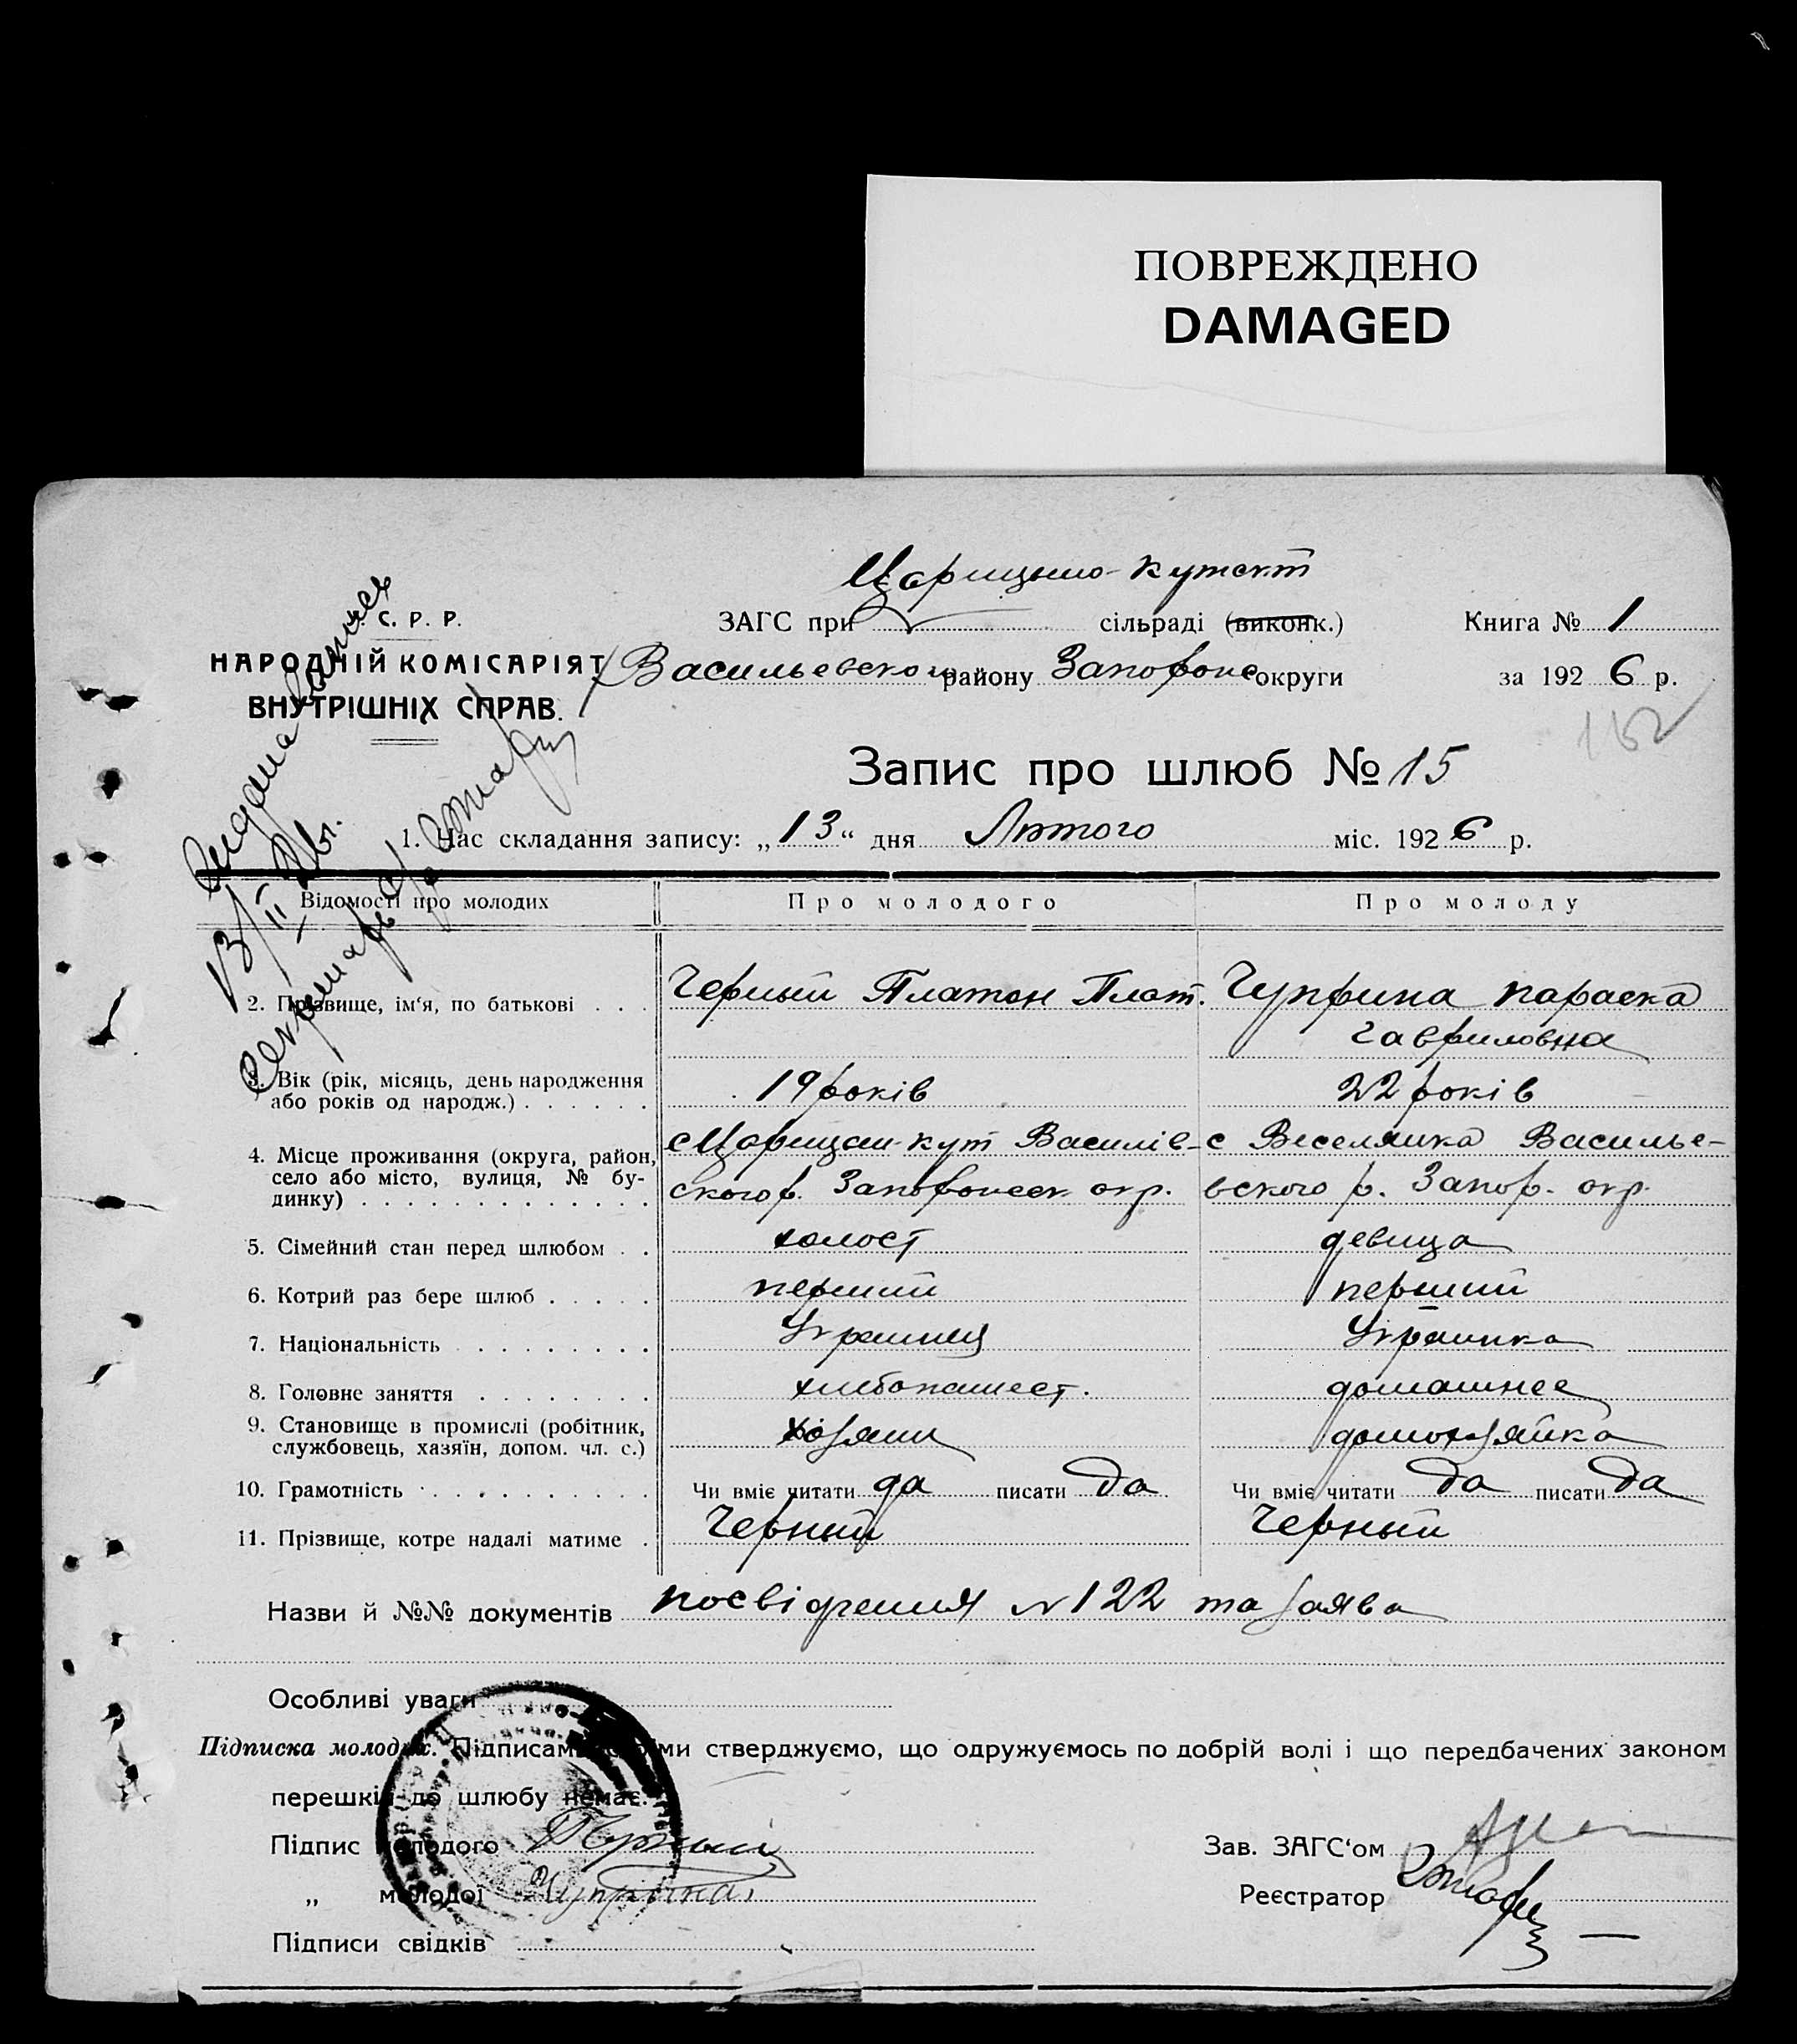 ПОВРЕЖДЕНО
DAMAGED
Царицыно-кутскт
С. Р. Р.
ЗАГС при сільраді (виконк.) Книга № 1
НАРОДНІЙ КОМІСАРІЯТ
Васильевском району Запорожс округи за 1926 р.
ВНУТРІШНІХ СПРАВ.
152
Запис про шлюб № 15
1. Час складання запису: „13“ дня Лютого міс. 1926 р.
Выдана выпись
13/II 26 г.
Секретарь
Відомості про молодих Про молодого Про молоду
2. Прізвище, ім‘я, по батькові . . . Черный Платон Плат. Чуприна Параска
Гавриловна
3. Вік (рік, місяць, день народження
або років од народж.) . . . . . . 19 років 22 років
4. Місце проживання (округа, район, с Царицын-кут Василів- с Веселянка Василье-
село або місто, вулиця, № бу-
динку) . . . . . . . . . . . . . ского р. Запорожск окр. вского р. Запор. окр.
5. Сімейний стан перед шлюбом . . холост девица
6. Котрий раз бере шлюб . . . . . перший перший
7. Національність . . . . . . . . Украинец Украинка
8. Головне заняття . . . . . . . хлебопашест. домашнее
9. Становище в промислі (робітник,
службовець, хазяїн, допом. чл. с.) хозяин домохозяйка
10. Грамотність . . . . . . . . . . Чи вміє читати да писати да Чи вміє читати да писати да
11. Прізвище, котре надалі матиме . Черный Черный
Назви й №№ документів посвідчения №122 та заява
Особливі уваги
Підписка молодих. Підписами своїми стверджуємо, що одружуємось по добрій волі і що передбачених законом
перешкід до шлюбу немає.
Підпис молодого Черный Зав. ЗАГС‘ом
„ молодої Чуприна Реєстратор
Підписи свідків